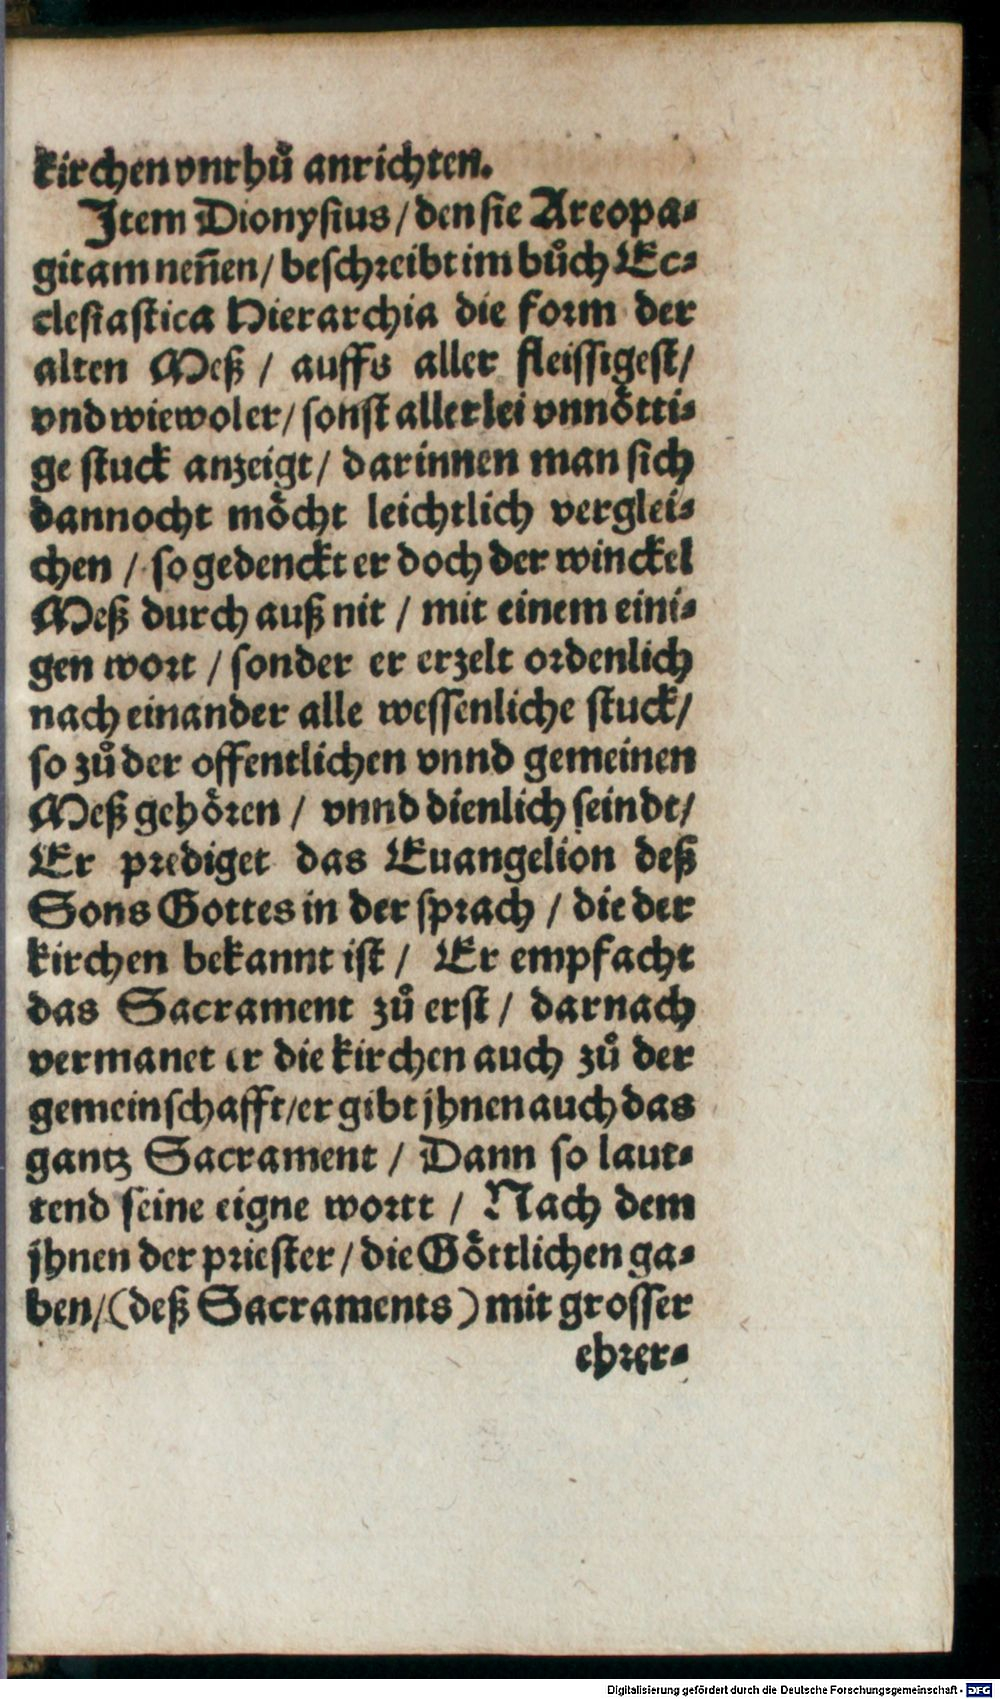 kirchen vnrhuͦ anrichten.
Item Dionysius / den sie Areopa⸗
gitam neñen / beschreibt im buͦch Ec⸗
clesiastica Hierarchia die form der
alten Meß / auffs aller fleissigest /
vnd wiewol er / sonst allerlei vnnoͤtti⸗
ge stuck anzeigt / darinnen man sich
dannocht moͤcht leichtlich verglei⸗
chen / so gedenckt er doch der winckel
Meß durch auß nit / mit einem eini⸗
gen wort / sonder er erzelt ordenlich
nach einander alle wessenliche stuck /
so zuͦ der offentlichen vnnd gemeinen
Meß gehoͤren / vnnd dienlich seindt /
Er prediget das Euangelion deß
Sons Gottes in der sprach / die der
kirchen bekannt ist / Er empfacht
das Sacrament zuͦ erst / darnach
vermanet er die kirchen auch zuͦ der
gemeinschafft / er gibt jhnen auch das
gantz Sacrament / Dann so laut⸗
tend seine eigne wortt / Nach dem
jhnen der priester / die Goͤttlichen ga⸗
ben / (deß Sacraments) mit grosser
ehrer⸗
Digitalisierung gefördert durch die Deutsche Forschungsgemeinschaft - DFG